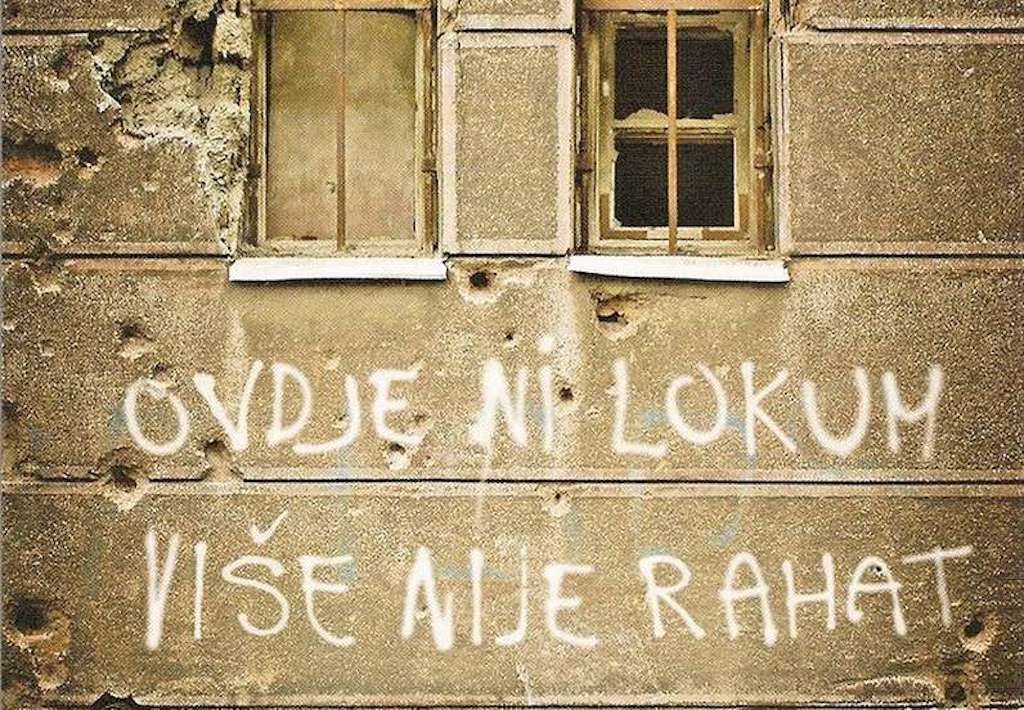 OVDJE NI LOKUM
VIŠE NIJE RAHAT